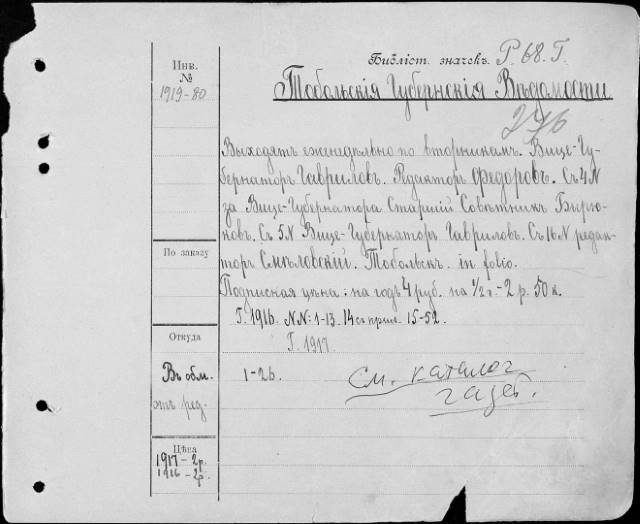 Библіот. значекъ. Р. 68. Г.
Инв.
№
1919-80
Тобольскія Губернскія Вѣдомости
276
Выходятъ еженедѣльно по вторникамъ. Вице-Гу-
бернаторъ Гавриловъ. Редакторъ Федоровъ. Съ 4 N
за Вице-Губернатора Старшій Совѣтникъ Бирю-
ковъ. Съ 5 N Вице-Губернаторъ Гавриловъ. Съ 16 N редак-
торъ Смѣловскій. Тобольскъ. in folio.
Подписная цѣна: на годъ 4 руб. на 1/2 г. - 2 р. 50 к.
Г. 1916. NN: 1-13. 14 съ прил. 15-52.
Г. 1917.
1-26.
См. каталог
газет.
По заказу
Откуда
Въ обм.
отъ ред.
Цѣна
1917 - 2 р.
1916 - 2 р.